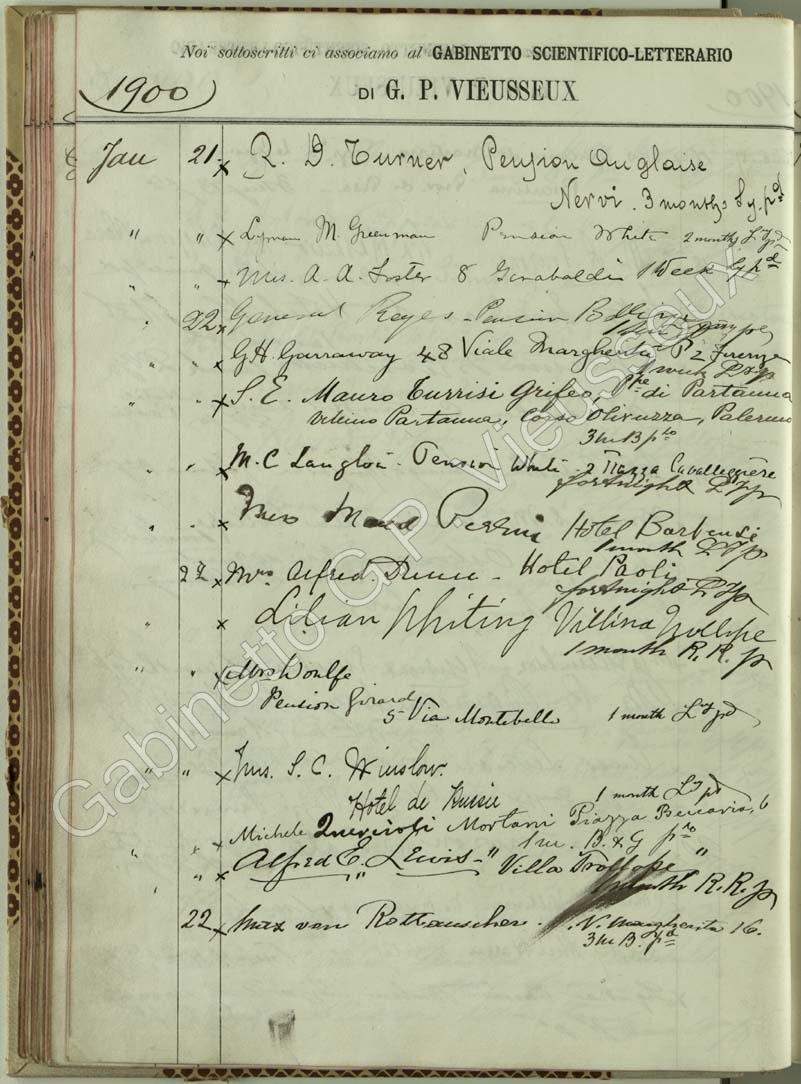 Noi sottoscritti ci associamo al GABINETTO SCIENTIFICO-LETTERARIO
1900
DI G. P. VIEUSSEUX
Jan 21 x R. D. Turner, Pension Anglaise
Nervi. 3 months
" " x Lyman M. Greenman Pension White 2 months
" " x Mrs. A. A. Foster 8 Garabaldi 1 Week
22 x General Reyes - Pension
" " G H Garraway 48 Viale Margherita Pº 2 Firenze
1 week
" " x S. E. Mauro Turrisi Grifeo, Ppe di Partanna
Villino Partanna, Corso Olivuzza, Palermo
3 m B pto
" " x M. C Langlois - Pension White - 2 Piazza Cavalleggiere
fortnight
" " x Maud Hotel
1 month
22 x Mrs Alfred - Hotel Paoli
fortnight
" x Lilian Whiting Villino Trollope
1 month R. R. p
" " x Mrs Woulfe
Pension Girard
5 Via Montebello 1 month
" " x Mrs. S. C. Winslow.
Hotel de 1 month
Michele Mortani Piazza Beccaria, 6
1 m. B. & G pto
" " x Alfred E. Lewis - " Villa Trollope "
1 month R. R. p
22 x Max von - V. Margherita 16.
3 m B. pd
Gabinetto G.P. Vieusseux